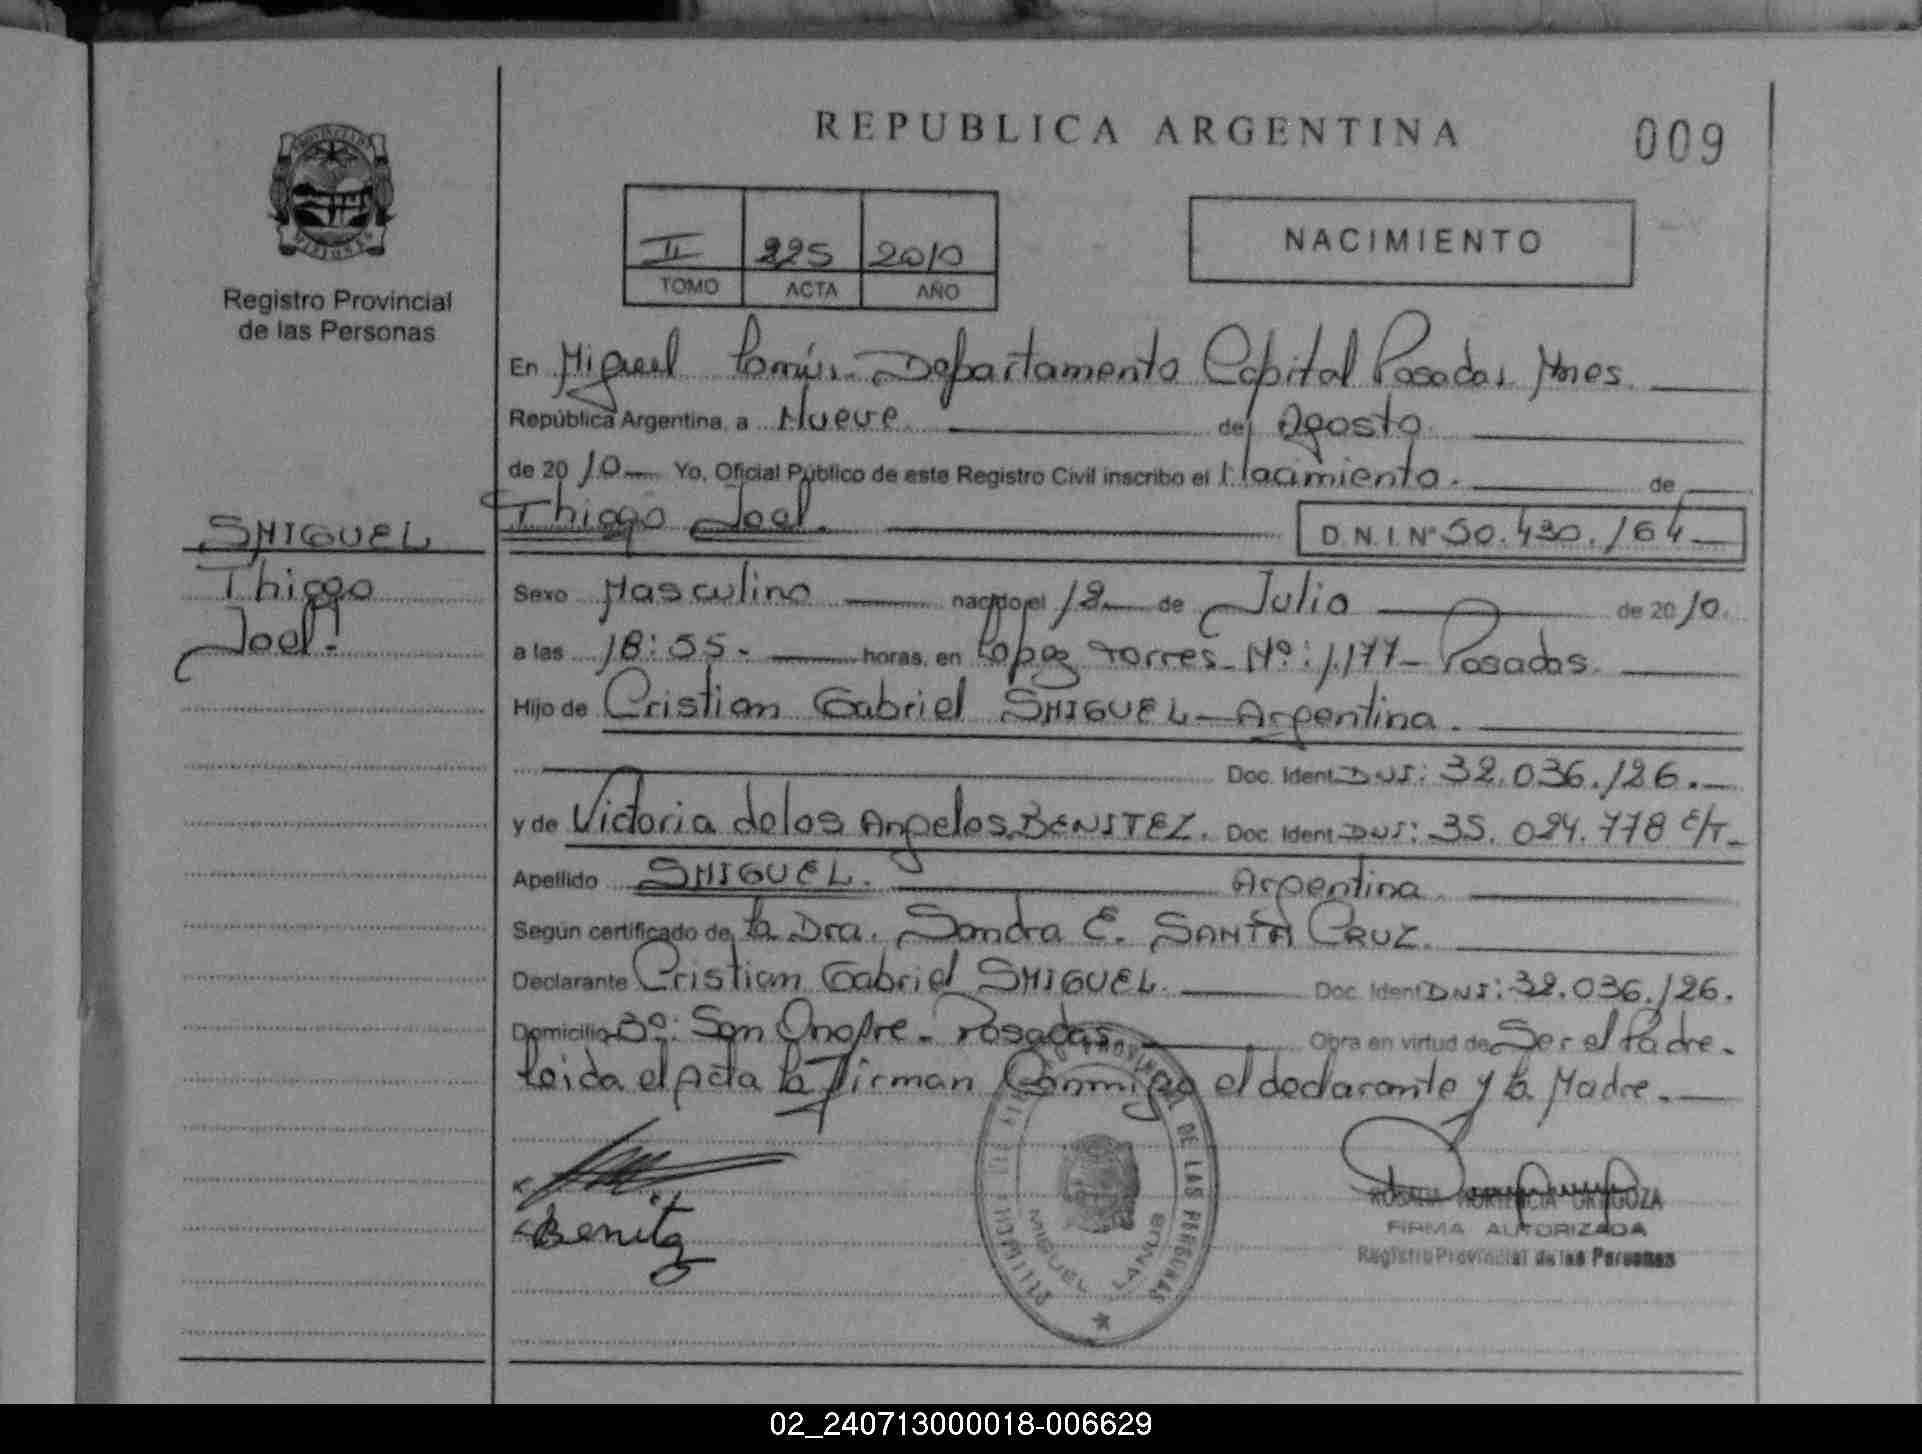 REPUBLICA ARGENTINA
009
PROVINCIA DE
MISIONES
Registro Provincial
de las Personas
II 225 2010
TOMO ACTA AÑO
NACIMIENTO
En Miguel Lanús. Departamento Capital Posadas Mnes.
República Argentina, a Nueve de Agosto.
de 2010 Yo, Oficial Público de este Registro Civil inscribo el Nacimiento. de
Thiago Joel.
D.N.I. Nº 50.430.164
SHIGUEL
Thiago
Joel.
Sexo Masculino nacido el 12 de Julio de 2010.
a las 18:55. horas, en Lopez Torres Nº: 1.177 Posadas.
Hijo de Cristian Gabriel SHIGUEL Argentina.
Doc. Ident. DNI: 32.036.126.
y de Victoria de los Angeles BENITEZ. Doc. Ident. DNI: 35.024.778 E/T
Apellido SHIGUEL. Argentina.
Según certificado de la Dra. Sandra E. SANTA CRUZ.
Declarante Cristian Gabriel SHIGUEL. Doc. Ident DNI: 32.036.126.
Domicilio Bº: San Onofre - Posadas Obra en virtud de Ser el Padre.
Leida el Acta la firman Conmigo el declarante y la Madre.
Benitez
PROVINCIAL DE LAS PERSONAS
MIGUEL LANUS
ROSALIA HORTENCIA ORTIGOZA
FIRMA AUTORIZADA
Registro Provincial de las Personas
02_240713000018-006629